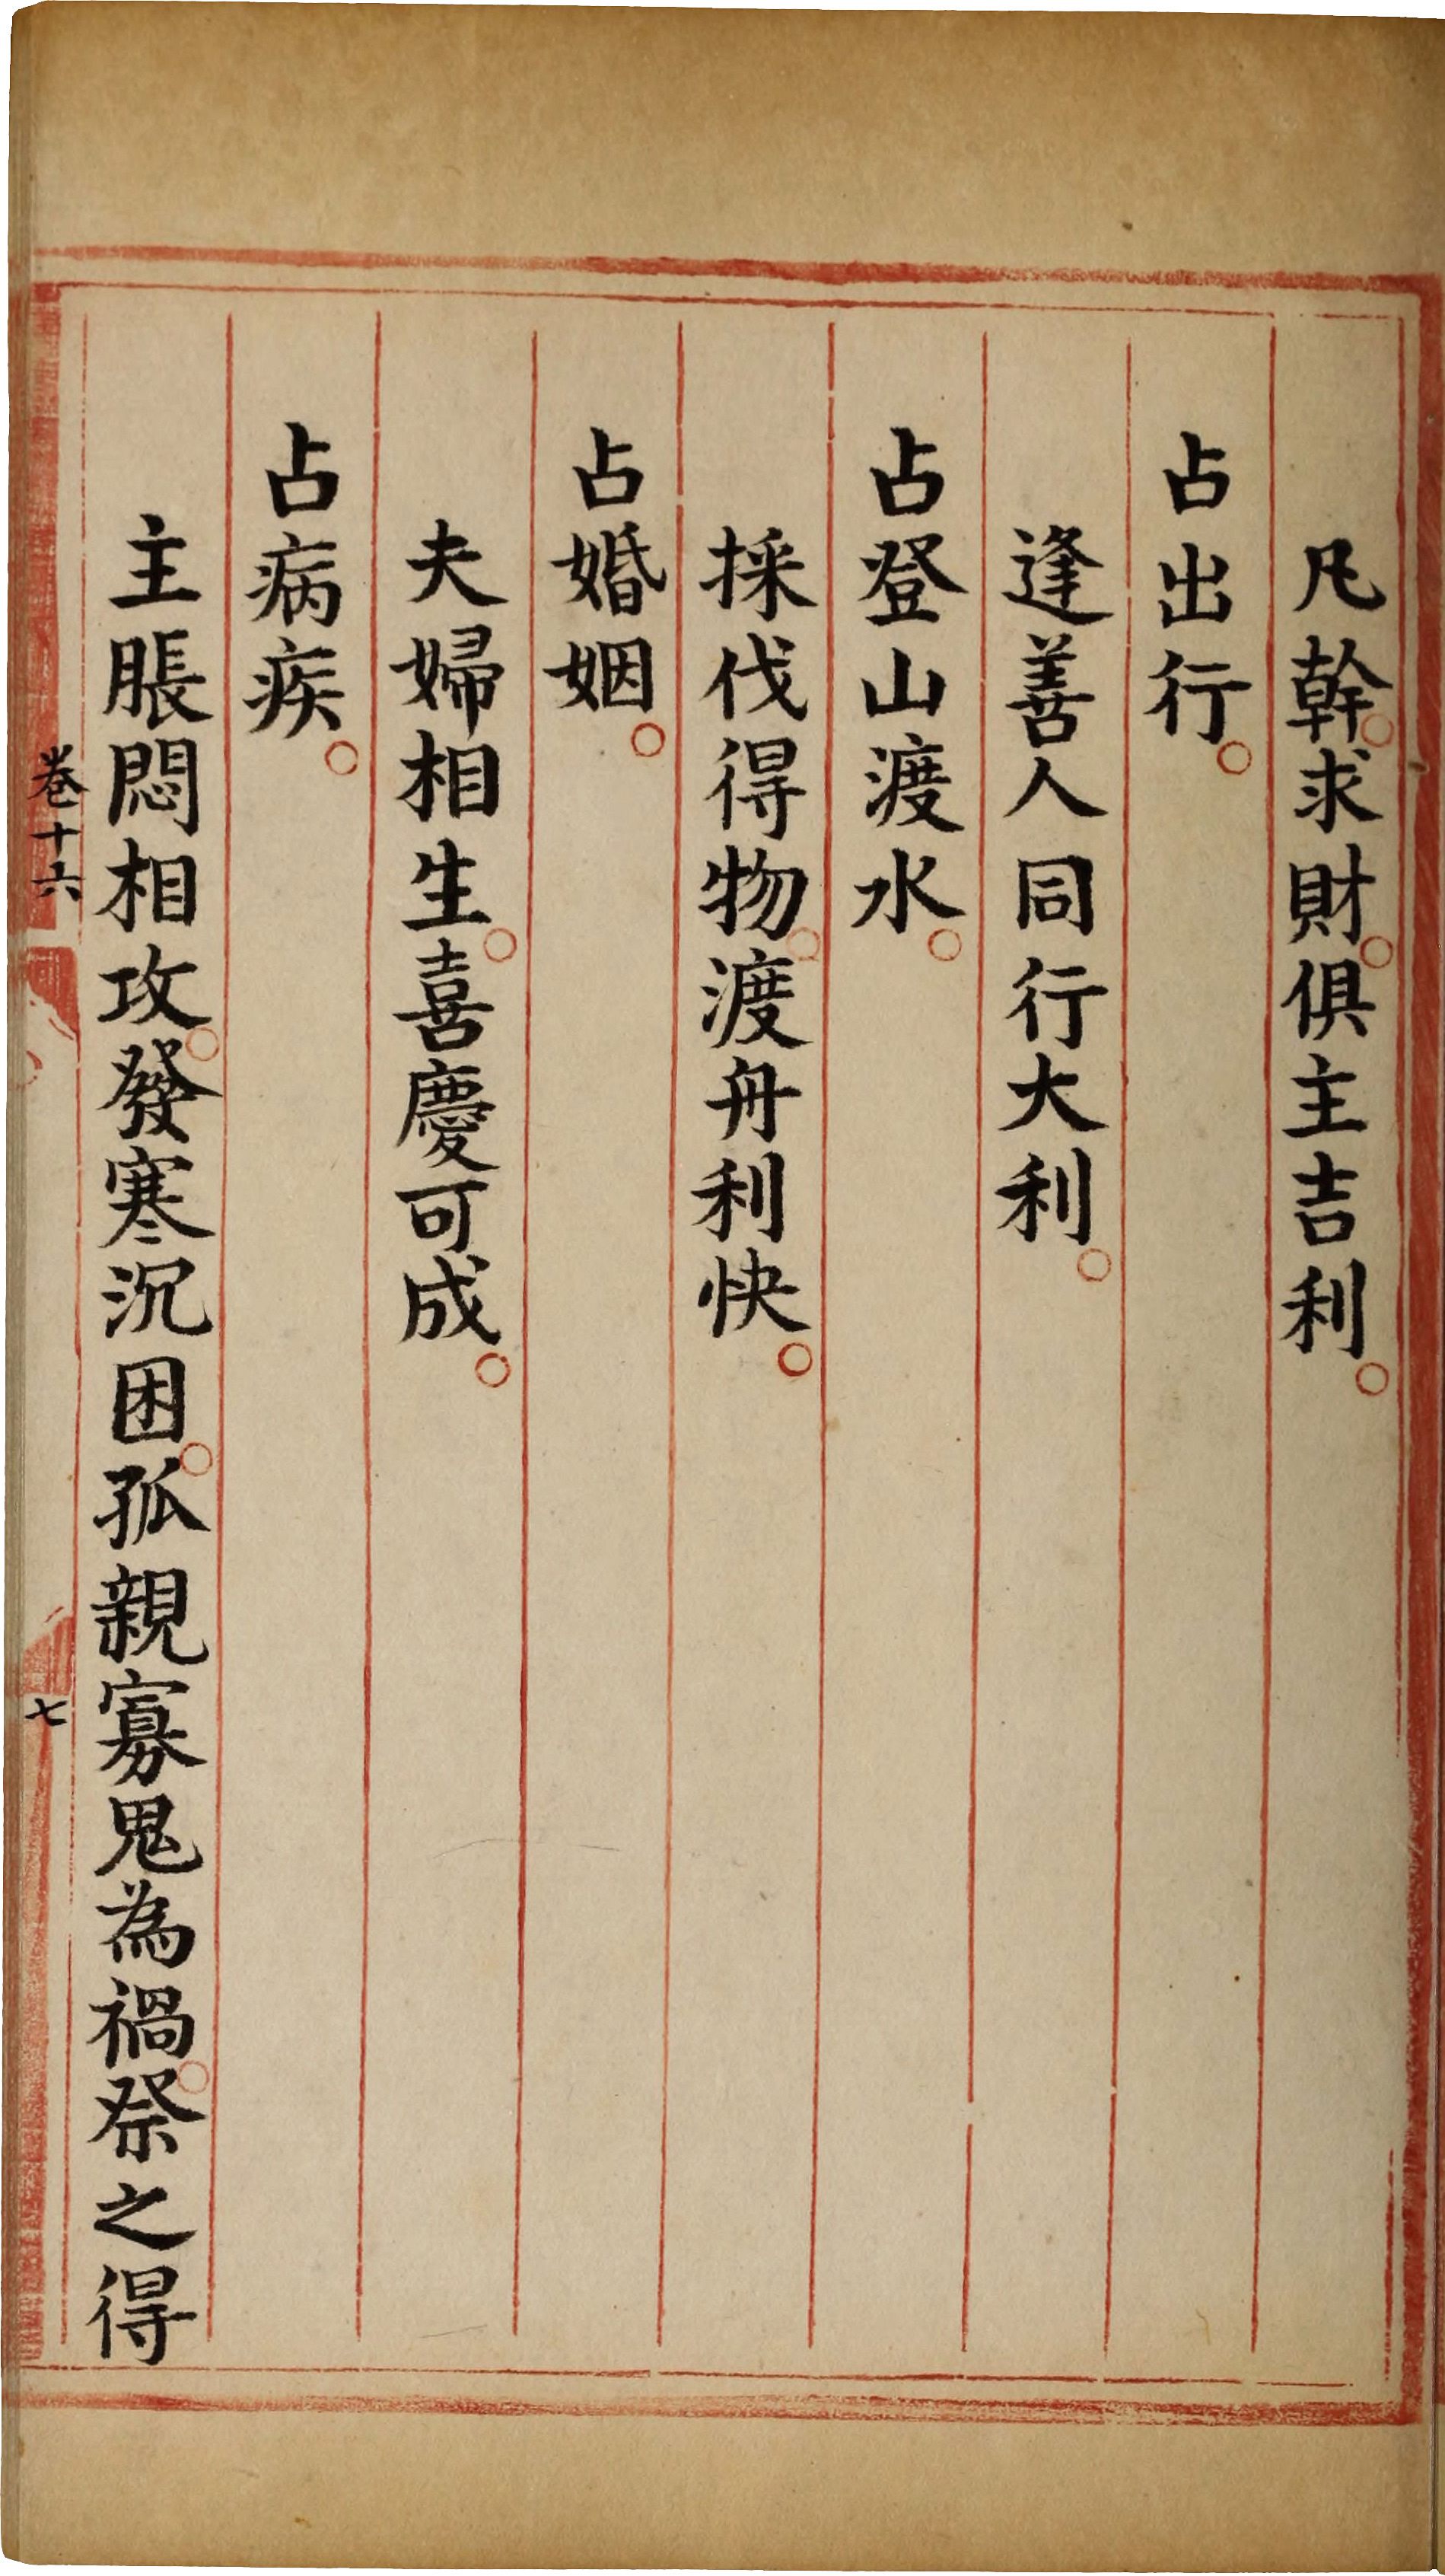 凡幹○求財○俱主吉利○
占出行○
逢善人同行大利○
占登山渡水○
採伐得物○渡舟利快○
占婚姻○
夫婦相生○喜慶可成○
占病疾○
主脹悶相攻○發寒沉困○孤親寡鬼為禍○祭之得
卷十六
七